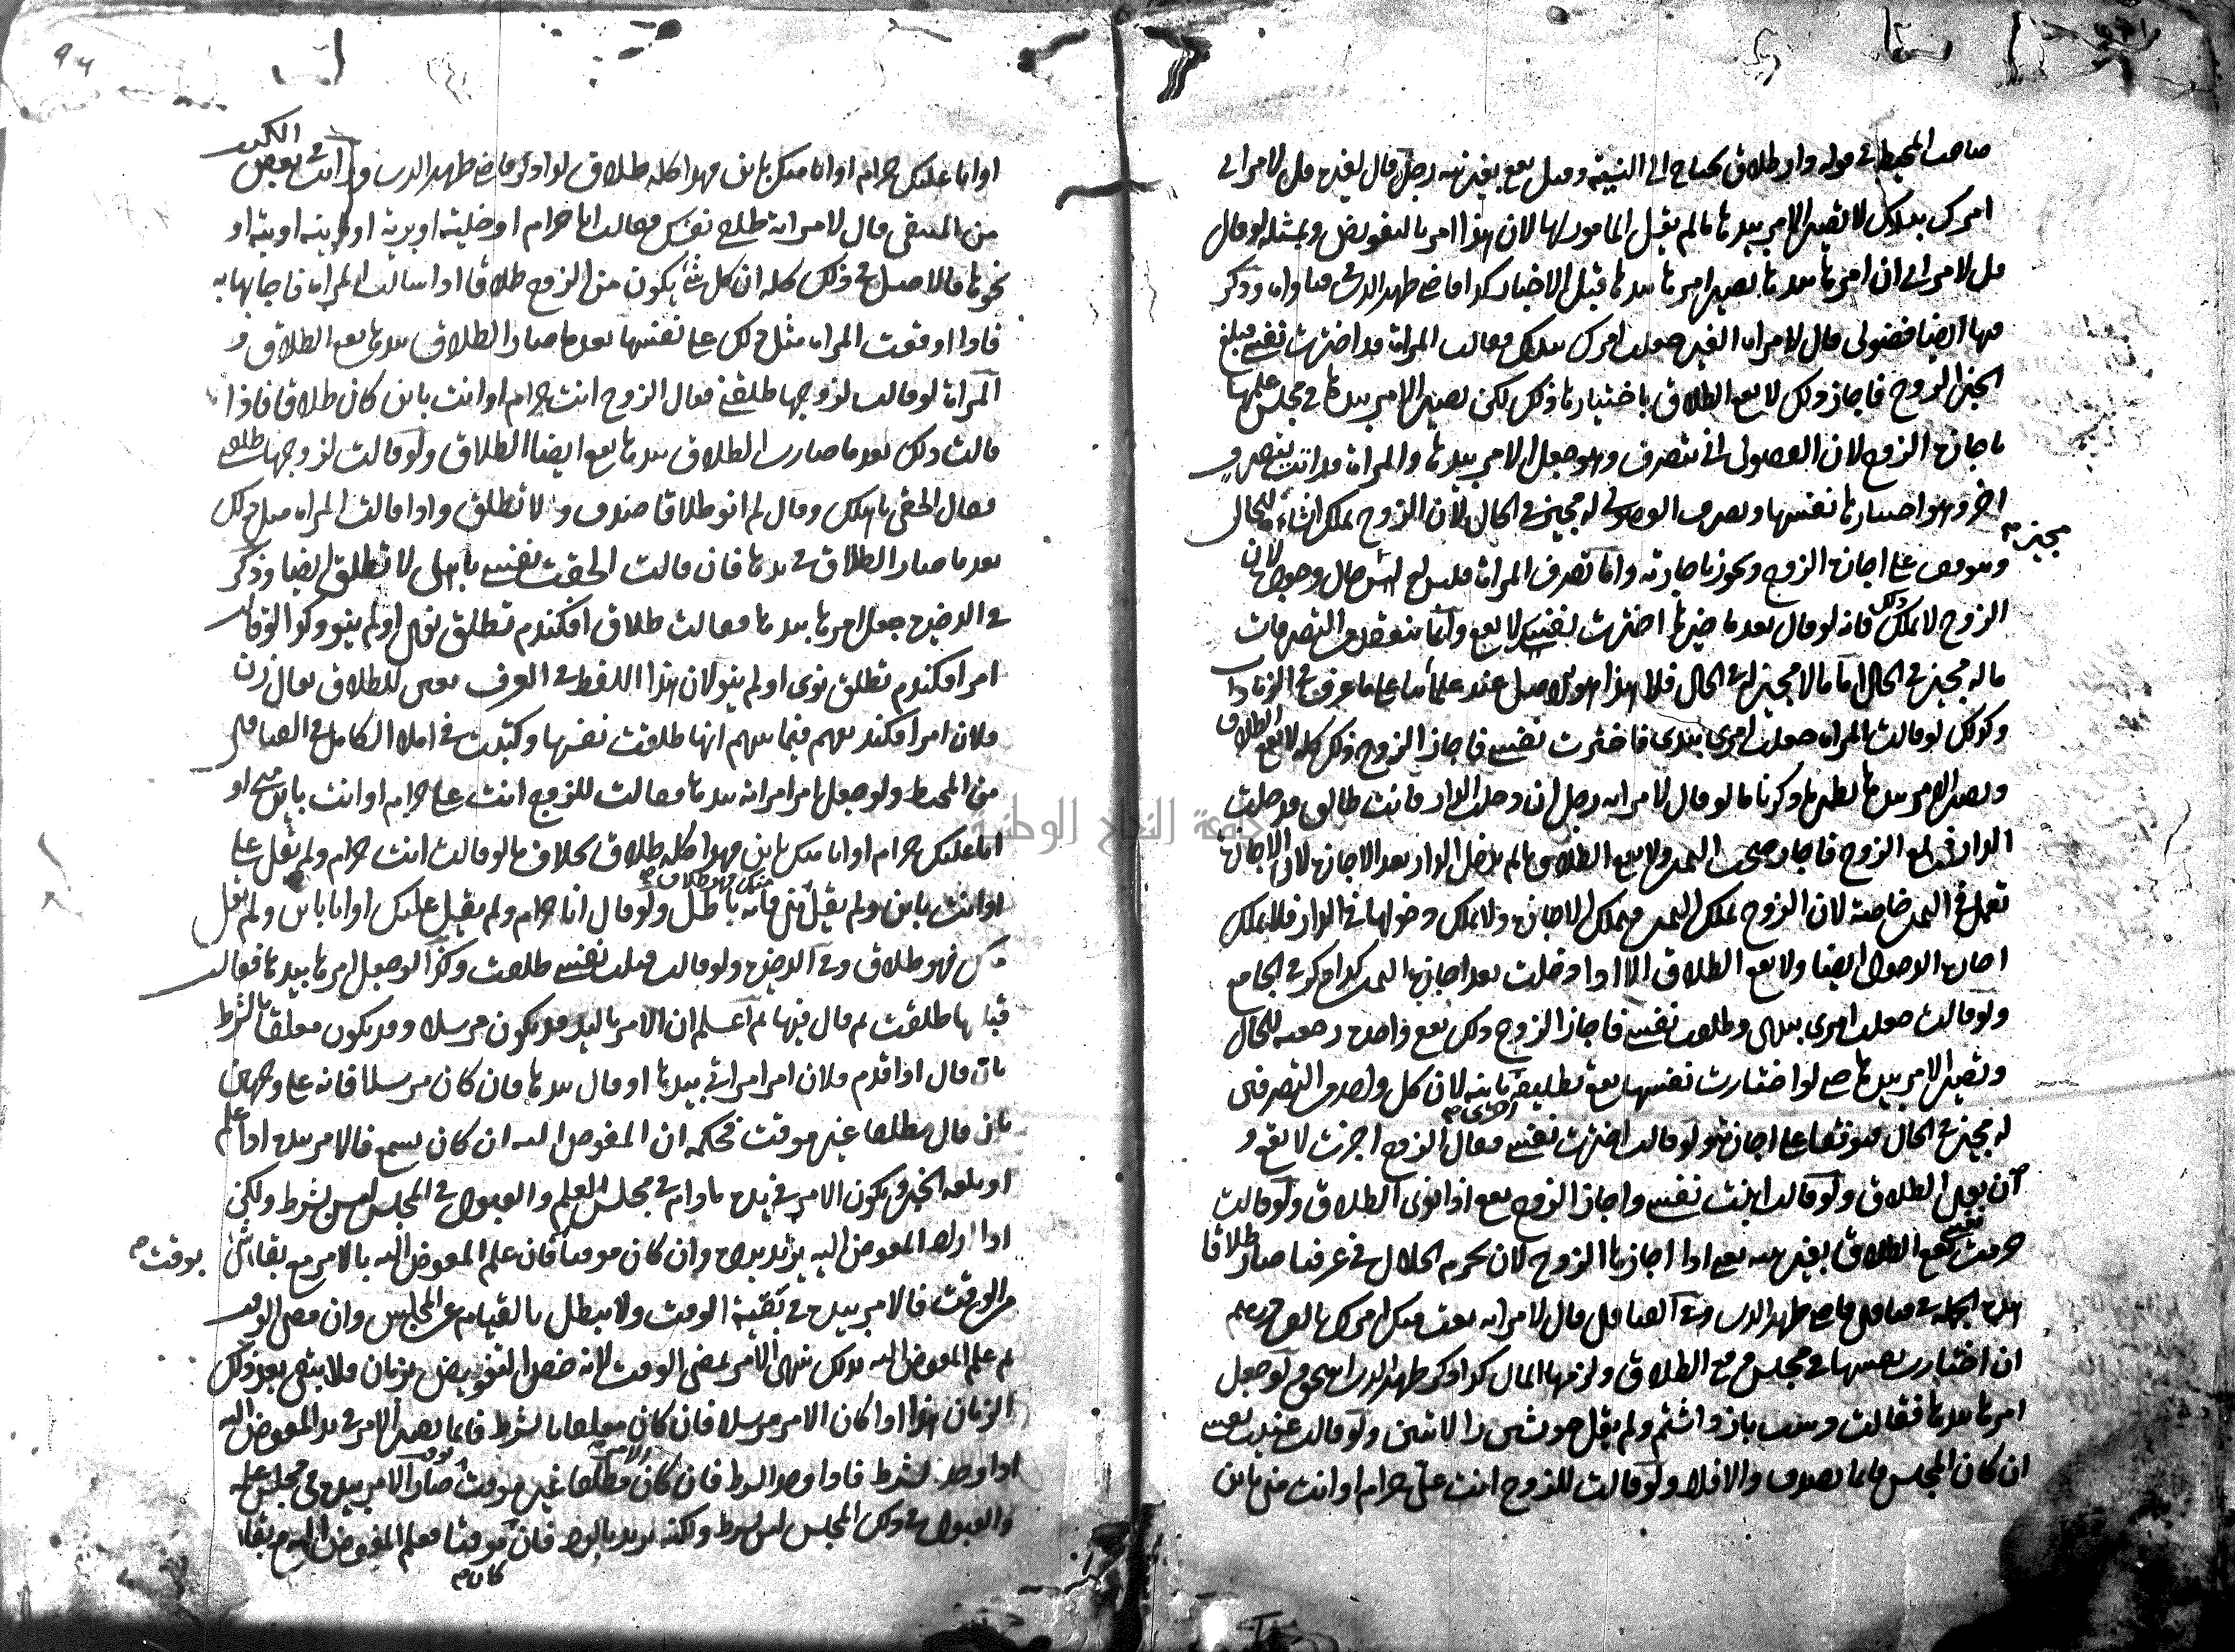 صاحب المحيط في قوله داد طلاق يحتاج الى النية وقيل يقع بغير نية رجل قال لغيره قل لامراتي
امرك بيدك لا يصير الامر بيدها ما لم يقل المامور لها لان هذا امر بالتفويض وبمثله لو قال
قل لامراتي ان امرها بيدها يصير امرها بيدها قبل الاخبار كذا قاضي ظهير الدين في فتاواه وذكر
فيها ايضا فضولي قال لامراة الغير جعلت امرك بيدك فقالت المراة قد اخترت نفسي فبلغ
الخبر الزوج فاجاز ذلك لا يقع الطلاق باختيارها ذلك لكن يصير الامر بيدها في مجلس علمها
باجازة الزوج لان الفضولي اتى بتصرف وهو جعل الامر بيدها والمراة قد اتت بتصرف
اخر وهو اختيارها نفسها وتصرف الفضولي له مجيز في الحال لان الزوج يملك انشاءه للحال
وتوقف على اجازة الزوج ويجوز باجازته واما تصرف المراة فليس له مجيز حال وجوده لان
الزوج لا يملك ذلك فانه لو قال بعد ما خيرها اخترت نفسك لا يقع وانما يتوقف من التصرفات
ما له مجيز في الحال اما ما لا مجيز له في الحال فلا هذا هو الاصل عند علمائنا على ما عرف في الزيادات
وكذلك لو قالت المراة جعلت امري بيدي فاخترت نفسي فاجاز الزوج ذلك كله لا يقع الطلاق
ويصير الامر بيدها نظير ما ذكرنا ما لو قال لامراة رجل ان دخلت الدار فانت طالق فدخلت
الدار فبلغ الزوج فاجاز صحت اليمين ولا يقع الطلاق ما لم تدخل الدار بعد الاجازة لان الاجازة
تعمل في اليمين خاصة لان الزوج يملك اليمين فيملك الاجازة ولا يملك دخولها في الدار فلا يملك
اجازة الدخول ايضا ولا يقع الطلاق الا اذا دخلت بعد اجازته اليمين كذا ذكر في الجامع
ولو قالت جعلت امري بيدي وطلقت نفسي فاجاز الزوج ذلك يقع واحدة رجعية للحال
ويصير الامر بيدها حتى لو اختارت نفسها يقع تطليقة اخرى باينة لان كل واحد من التصرفين
له مجيز في الحال فتوقفا على اجازته ولو قالت اخترت نفسي فقال الزوج اجزت لا يقع و
ان نوى الطلاق ولو قالت ابنت نفسي واجاز الزوج يقع اذا نوى الطلاق ولو قالت
حرمت نفسي يقع الطلاق بغير نية يعني اذا اجازها الزوج لان تحريم الحلال في عرفنا صار طلاقا
هذه الجملة في فتاوى قاضي ظهير الدين وفي الفتاوى قال لامراته بعت منك امرك بالف درهم
ان اختارت نفسها في مجلس وقع الطلاق ولزمها المال كذا ذكر ظهير الدين ولو جعل
امرها بيدها فقالت دست باز داشتم ولم يقل خويشتن را لا تبين ولو قالت عنيت نفسي
ان كان المجلس قائما تصدق والا فلا ولو قالت للزوج انت علي حرام او انت مني باين
او انا عليك حرام او انا منك باين فهذا كله طلاق لو اذكر قاضي ظهير الدين ورايت في بعض الكتب
من المنتقى قال لامراته طلقي نفسك فقالت انا حرام او خلية او برية او باينة او بتة او
نحوها فالاصل في ذلك كله ان كل شيء يكون من الزوج طلاقا اذا سالت المراة فاجابها به
فاذا اوقعت المراة مثل ذلك على نفسها بعد ما صار الطلاق بيدها يقع الطلاق و
المراة لو قالت لزوجها طلقني فقال الزوج انت حرام او انت باين كان طلاقا فاذا
قالت ذلك بعد ما صارت الطلاق بيدها يقع ايضا الطلاق ولو قالت لزوجها طلقني
فقال الحقي باهلك وقال لم انو طلاقا صدق ولا تطلق واذا قالت المراة مثل ذلك
بعد ما صار الطلاق في يدها فان قالت الحقت نفسي باهلي لا تطلق ايضا وذكر
في الذخيرة جعل امرها بيدها فقالت طلاق افكندم تطلق نوى او لم ينو وكذا لو قالت
امر افكندم تطلق نوى او لم ينو لان هذا اللفظ في العرف للطلاق يقال زن
فلان امر افكند يفهم فيما بينهم انها طلقت نفسها وكتبت في املا الكامل في الفتاوى
من المحيط ولو جعل امر امراته بيدها فقالت للزوج انت علي حرام او انت باين مني او
انا عليك حرام او انا منك باين فهذا كله طلاق بخلاف ما لو قالت انت حرام ولم تقل علي
او انت باين ولم يقل مني فانه باطل ولو قال انا حرام ولم يقل عليك او انا باين ولم يقل
منك فهو طلاق وفي الذخيرة ولو قالت قبلت نفسي طلقت وكذا لو جعل امرها بيدها فقالت
قبلتها طلقت ثم قال فيها ثم اعلم ان الامر باليد قد يكون مرسلا وقد يكون معلقا بالشرط
بان قال اذا قدم فلان امر امراتي بيدها او قال بيدها فان كان مرسلا فانه على وجهين
بان قال مطلقا غير موقت فحكمه ان المفوض اليه ان كان يسمع فالامر بيده اذا علم
او بلغه الخبر يكون الامر في يده ما دام في مجلس العلم والقبول في المجلس ليس بشرط ولكن
اذا رد المفوض اليه يرتد برده وان كان موقتا فان علم المفوض اليه بالامر مع بقاء شيء
من الوقت فالامر بيده في بقية الوقت ولا يبطل بالقيام عن المجلس وان مضى الوقت
ثم علم المفوض اليه بذلك ينتهي الامر بمضي الوقت لانه خص التفويض بزمان ولا يبقى بعد ذلك
الزمان هذا اذا كان الامر مرسلا فان كان معلقا بالشرط فانما يصير الامر في يد المفوض اليه
اذا وجد الشرط فاذا وجد الشرط فان كان الامر مطلقا غير موقت صار الامر بيده في مجلس علمه
والقبول في ذلك المجلس ليس بشرط ولكنه يرتد بالرد فان كان موقتا فعلم المفوض اليه مع بقاء